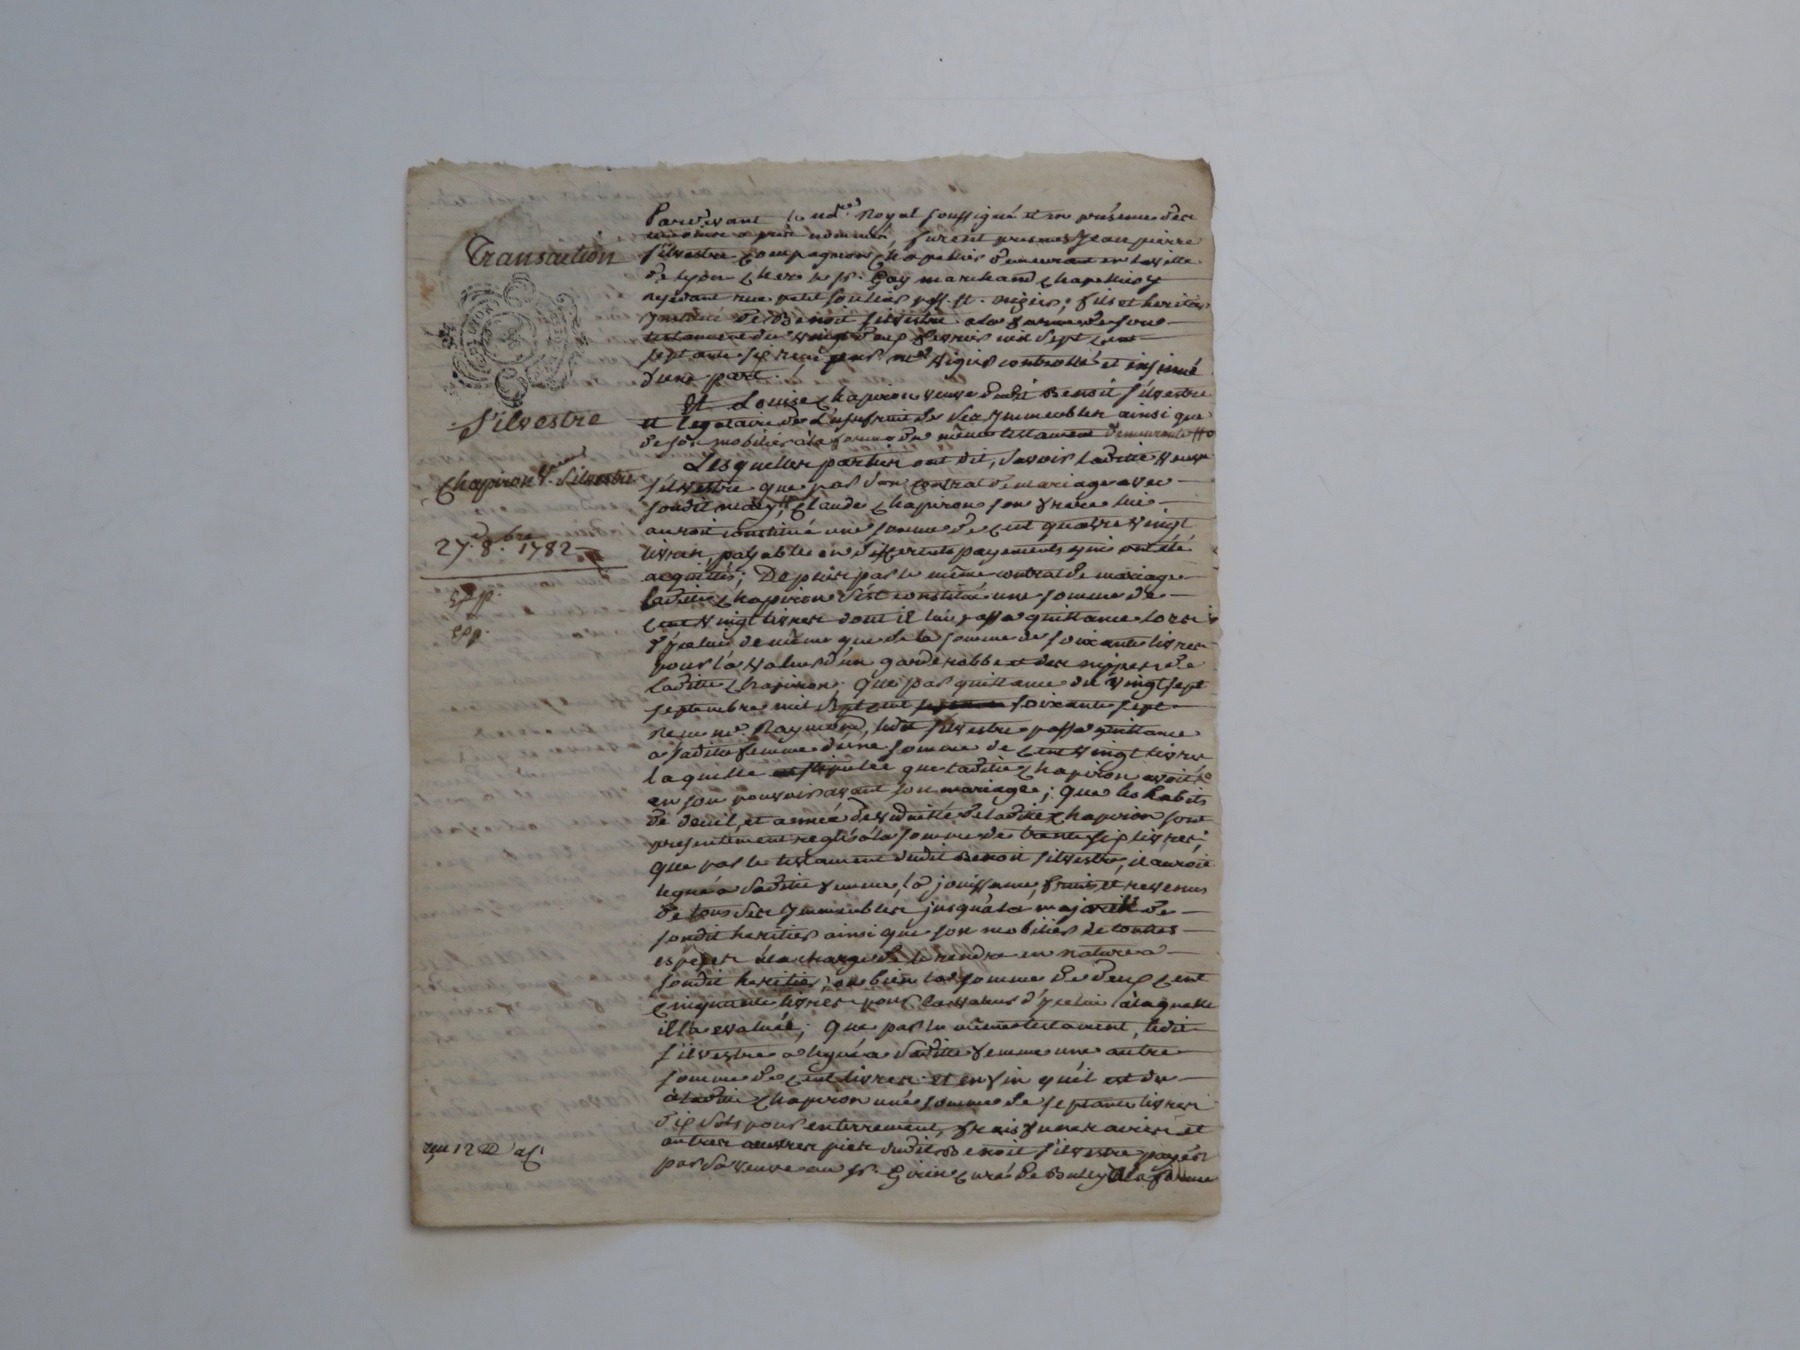 Transaction
Silvestre
Chapiron Veuve Silvestre
27. 8.bre 1782
Pardevant le no.re Royal soussigné et en présence des
temoins après nommés, furent presents Jean pierre
Silvestre Compagnon Chapellier demeurant en la ville
de Lyon chez le sr. Gay marchand Chapellier y
residant rue petit soulier psse. st. nizier; fils et heritier
institué de Benoit Silvestre a la forme de son
testament du vingt deux fevrier mil sept cent
septante six reçu par me. Vigier controllé et insinué
d'une part.
Et Louise Chapiron veuve dudit Benoit Silvestre
et legataire de l'usufruit de ses Immeubles ainsi que
de son mobilier à la forme du même testament demeurante
Lesquelles parties ont dit, savoir ladite veuve
Silvestre que par son contrat de mariage avec
sondit mary Claude Chapiron son frère lui
auroit constitué une somme de cent quatre vingt
livres, payable en differents payements qui ont été
acquittés; De plus par le même contrat de mariage
ladite Chapiron s'est constitué une somme de
cent vingt livres dont il lui passa quittance lors
d'ycelui de même que de la somme de soixante livres
pour la valeur d'un garderobbe et des nippes de
ladite Chapiron; Que par quittance du vingt sept
septembre mil sept cent soixante sept
reçue me. Raymond, ledit Silvestre passa quittance
a sadite femme d'une somme de cent vingt livres
laquelle stipulée que ladite Chapiron avoit
en son pouvoir avant son mariage; Que les habits
de deuil, et année de viduité de ladite Chapiron sont
presentement reglés à la somme de trente six livres;
Que par le testament dudit Benoit Silvestre, il auroit
legué a sadite femme, la jouissance, fruits et revenus
de tous ses Immeubles jusqu'à la majorité de
sondit heritier ainsi que son mobilier de toutes
especes à la charge de le rendre en nature a
sondit heritier, ou bien la somme de deux cent
cinquante livres pour la valeur d'ycelui à laquelle
il l'a evalué; Que par le même testament, ledit
Silvestre a legué a sadite femme une autre
somme de cent livres et enfin qu'il est du
à ladite Chapiron une somme de septante livres
dix sols pour enterrement, frais funeraires et
autres œuvres pies dudit Benoit Silvestre payés
par sa veuve au sr. Girin Curé de Bully à la forme